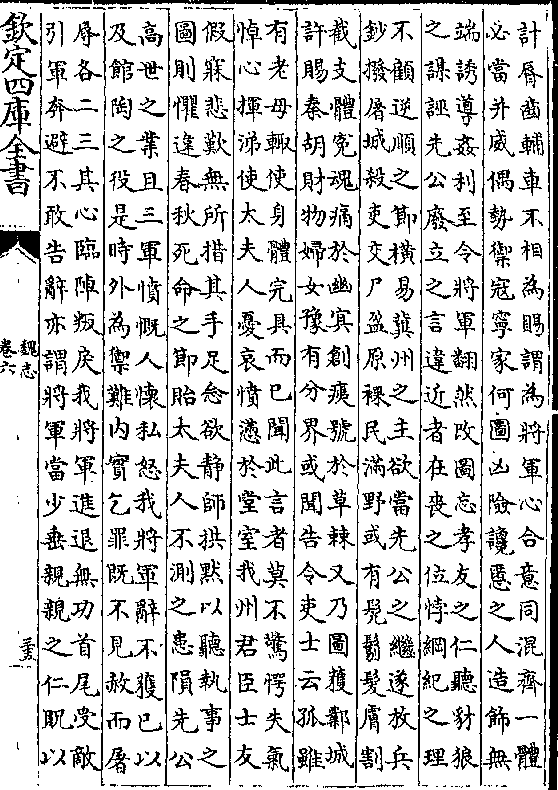 計脣齒輔車不相為賜謂為將軍心合意同混齊一體
必當并威偶勢禦寇寧家何圖凶險讒慝之人造飾無
端誘導姦利至令將軍翻然改圖忘孝友之仁聽豺狼
之謀誣先公廢立之言違近者在喪之位悖綱紀之理
不顧逆順之節橫易冀州之主欲當先公之繼遂放兵
鈔撥屠城殺吏交尸盈原裸民滿野或有髠鬀髮膚割
截支體寃魂痛於幽冥創痍號於草棘又乃圖獲鄴城
許賜秦胡財物婦女豫有分界或聞告令吏士云孤雖
有老母輒使身體完具而已聞此言者莫不驚愕失氣
悼心揮涕使太夫人憂哀憤懣於堂室我州君臣士友
假寐悲歎無所措其手足念欲静師拱默以聽執事之
圖則懼違春秋死命之節貽太夫人不測之患隕先公
高世之業且三軍憤慨人懷私怒我將軍辭不獲已以
及館陶之役是時外為禦難内實乞罪既不見赦而屠
辱各二三其心臨陣叛戾我將軍進退無功首尾受敵
引軍奔避不敢告辭亦謂將軍當少垂親親之仁貺以
欽定四庫全書
魏志
卷六